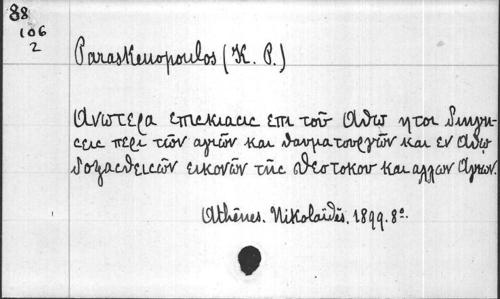 88
106
2
Paraskeuopoulos (K. P.)
Ανωτερα επισκιασις επι τοῦ Αθω ητοι διηγη-
σεις περι τῶν αγιῶν και θαυματουργῶν και εν Αθῳ
δοξασθεισῶν εικονῶν τῆς Θεοτοκου και αλλων Αγιων.
Athènes. Nikolaïdès. 1899. 8º.